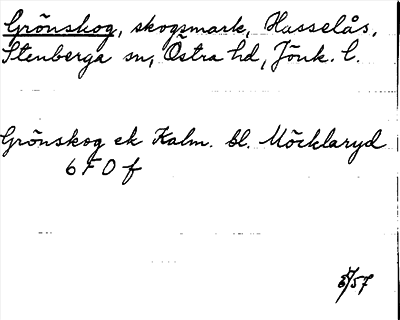 Grönskog, skogsmark, Hasselås,
Stenberga sn, Östra hd, Jönk. l.
Grönskog ek Kalm. bl. Möcklaryd
6 F 0 f